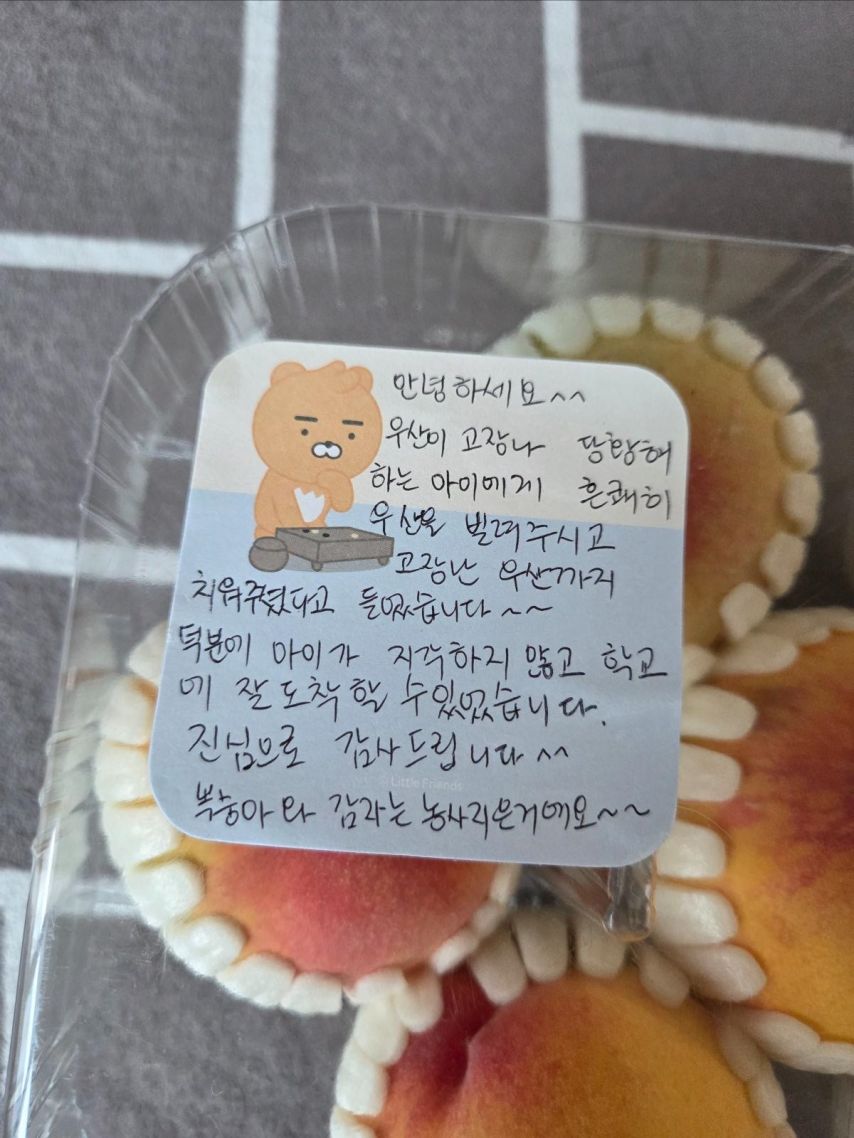 안녕하세요^^
우산이 고장나 당황해
하는 아이에게 흔쾌히
우산을 빌려주시고
고장난 우산까지
치워주셨다고 들었습니다~~
덕분에 아이가 지각하지 않고 학교
에 잘 도착할 수 있었습니다.
진심으로 감사드립니다^^
Little Friends
복숭아와 감자는 농사지은거예요~~